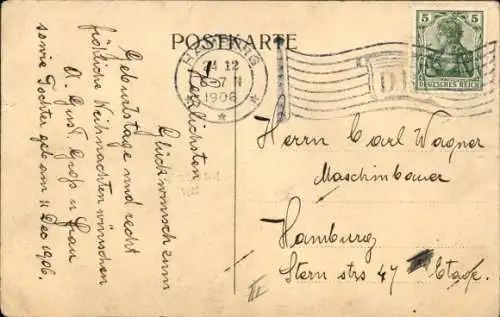 POSTKARTE
5 5
DEUTSCHES REICH
HAMBURG
24 12
6-7 N
1906
* *
1
Herzlichsten
Glückwunsch zum
Geburtstage und recht
fröhliche Weihnachten wünschen
A. Gust. Groß u. Frau
sowie Tochter geb am 11 Dec 1906.
Herrn Carl Wagner
Maschinbauer
Hamburg
Stern strs 47 III Etage.
III